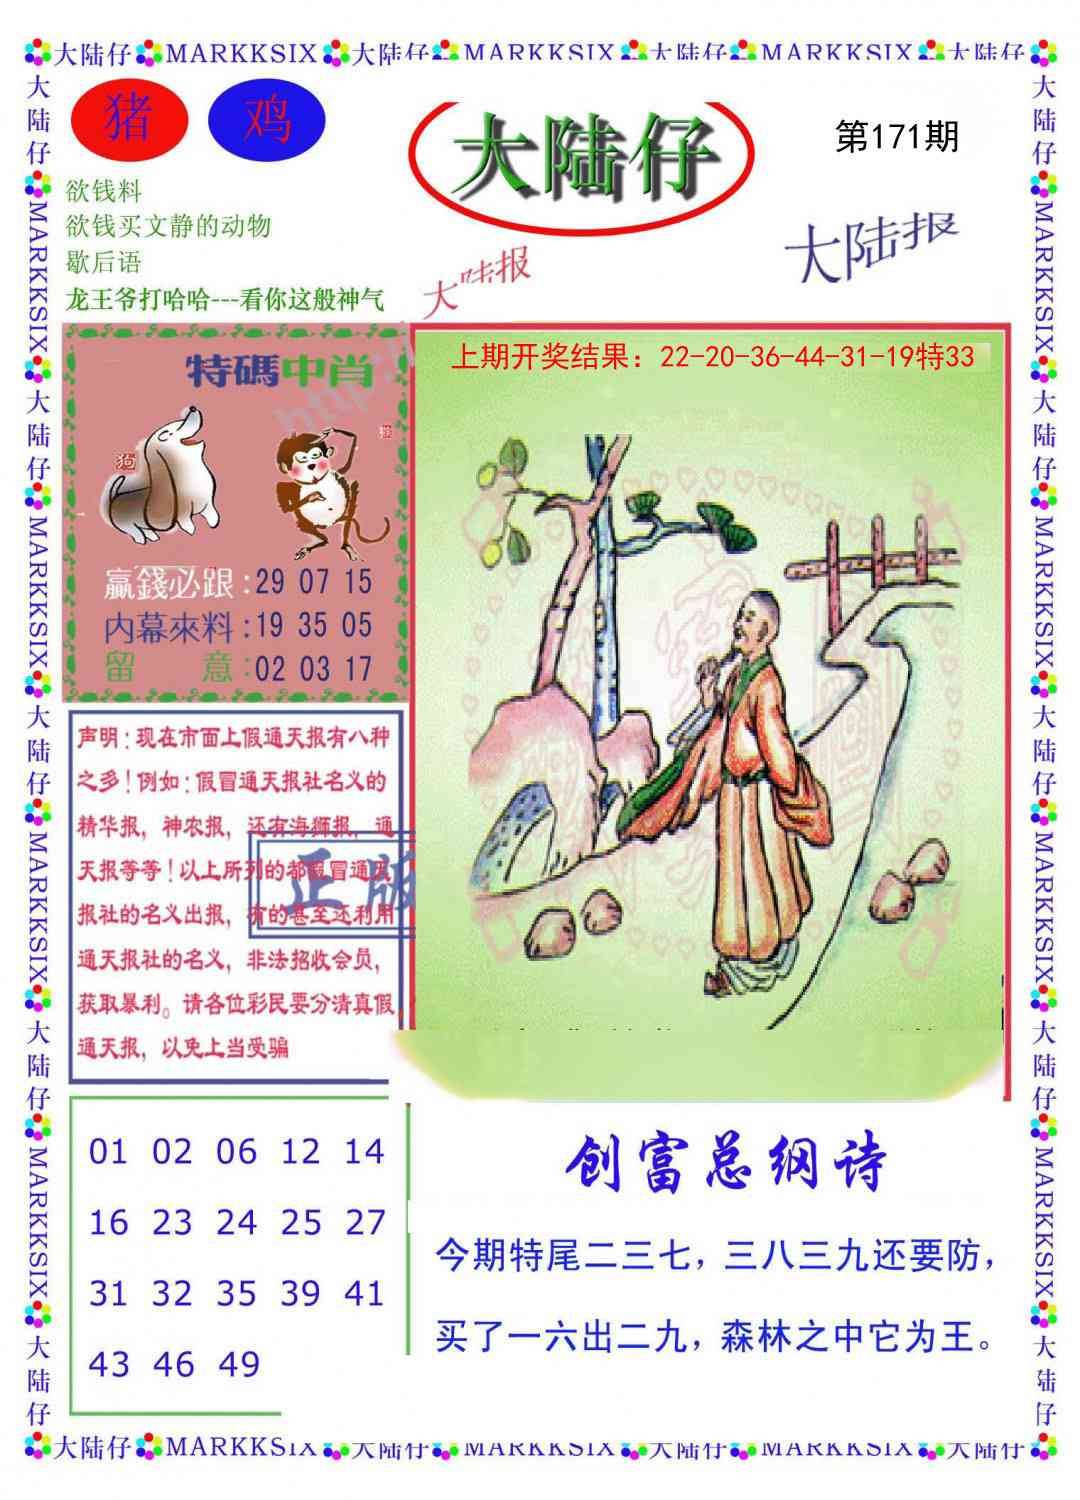 大陆仔 MARKKSIX 大陆仔 MARKKSIX 大陆仔 MARKKSIX 大陆仔
猪 鸡
大陆仔
第171期
欲钱料
欲钱买文静的动物
歇后语
龙王爷打哈哈---看你这般神气
大陆报
大陆报
特碼中肖
狗
猴
赢錢必跟：29 07 15
内幕來料：19 35 05
留意：02 03 17
上期开奖结果：22-20-36-44-31-19特33
声明：现在市面上假通天报有八种
之多！例如：假冒通天报社名义的
精华报，神农报，还有海狮报，通
天报等等！以上所列的都假冒通天
报社的名义出报，有的甚至还利用
通天报社的名义，非法招收会员，
获取暴利。请各位彩民要分清真假
通天报，以免上当受骗
正版
01 02 06 12 14
16 23 24 25 27
31 32 35 39 41
43 46 49
创富总纲诗
今期特尾二三七，三八三九还要防，
买了一六出二九，森林之中它为王。
大陆仔 MARKKSIX 大陆仔 MARKKSIX 大陆仔 MARKKSIX 大陆仔
大陆仔 MARKKSIX 大陆仔 MARKKSIX 大陆仔 MARKKSIX 大陆仔 MARKKSIX 大陆仔
大陆仔 MARKKSIX 大陆仔 MARKKSIX 大陆仔 MARKKSIX 大陆仔 MARKKSIX 大陆仔